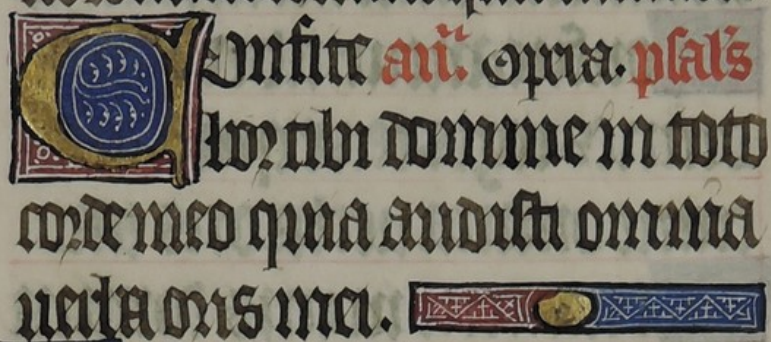 Confite añ. psal's
bor tibi domine in toto
corde meo quia audisti omnia
verba oris mei.